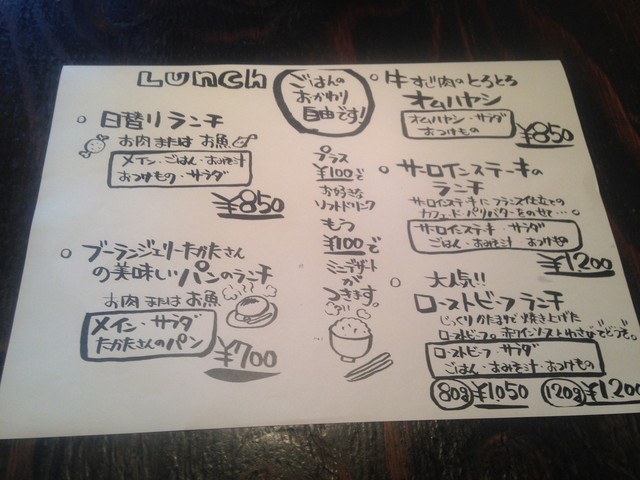 Lunch
ごはんの
おかわり
自由です!
日替りランチ
お肉 または お魚
メイン・ごはん・おみそ汁
おつけもの・サラダ
¥850
ブーランジェリーたかたさん
の美味しいパンのランチ
お肉 または お魚
メイン・サラダ
たかたさんのパン
¥700
プラス
¥100で
お好きな
ソフトドリンク
もう
¥100で
ミニデザート
が
つきます。
牛すじ肉のとろとろ
オムハヤシ
オムハヤシ・サラダ
おつけもの
¥850
サーロインステーキの
ランチ
サーロインステーキにフランス仕立ての
カフェ・ド・パリバターをのせて…。
サーロインステーキ・サラダ
ごはん・おみそ汁 おつけもの
¥1200
大人気!!
ローストビーフランチ
じっくりかたまりで焼き上げた
ローストビーフ。赤ワインソースとわさびでどうぞ。
ローストビーフ・サラダ
ごはん・おみそ汁・おつけもの
80g ¥1050 120g ¥1200